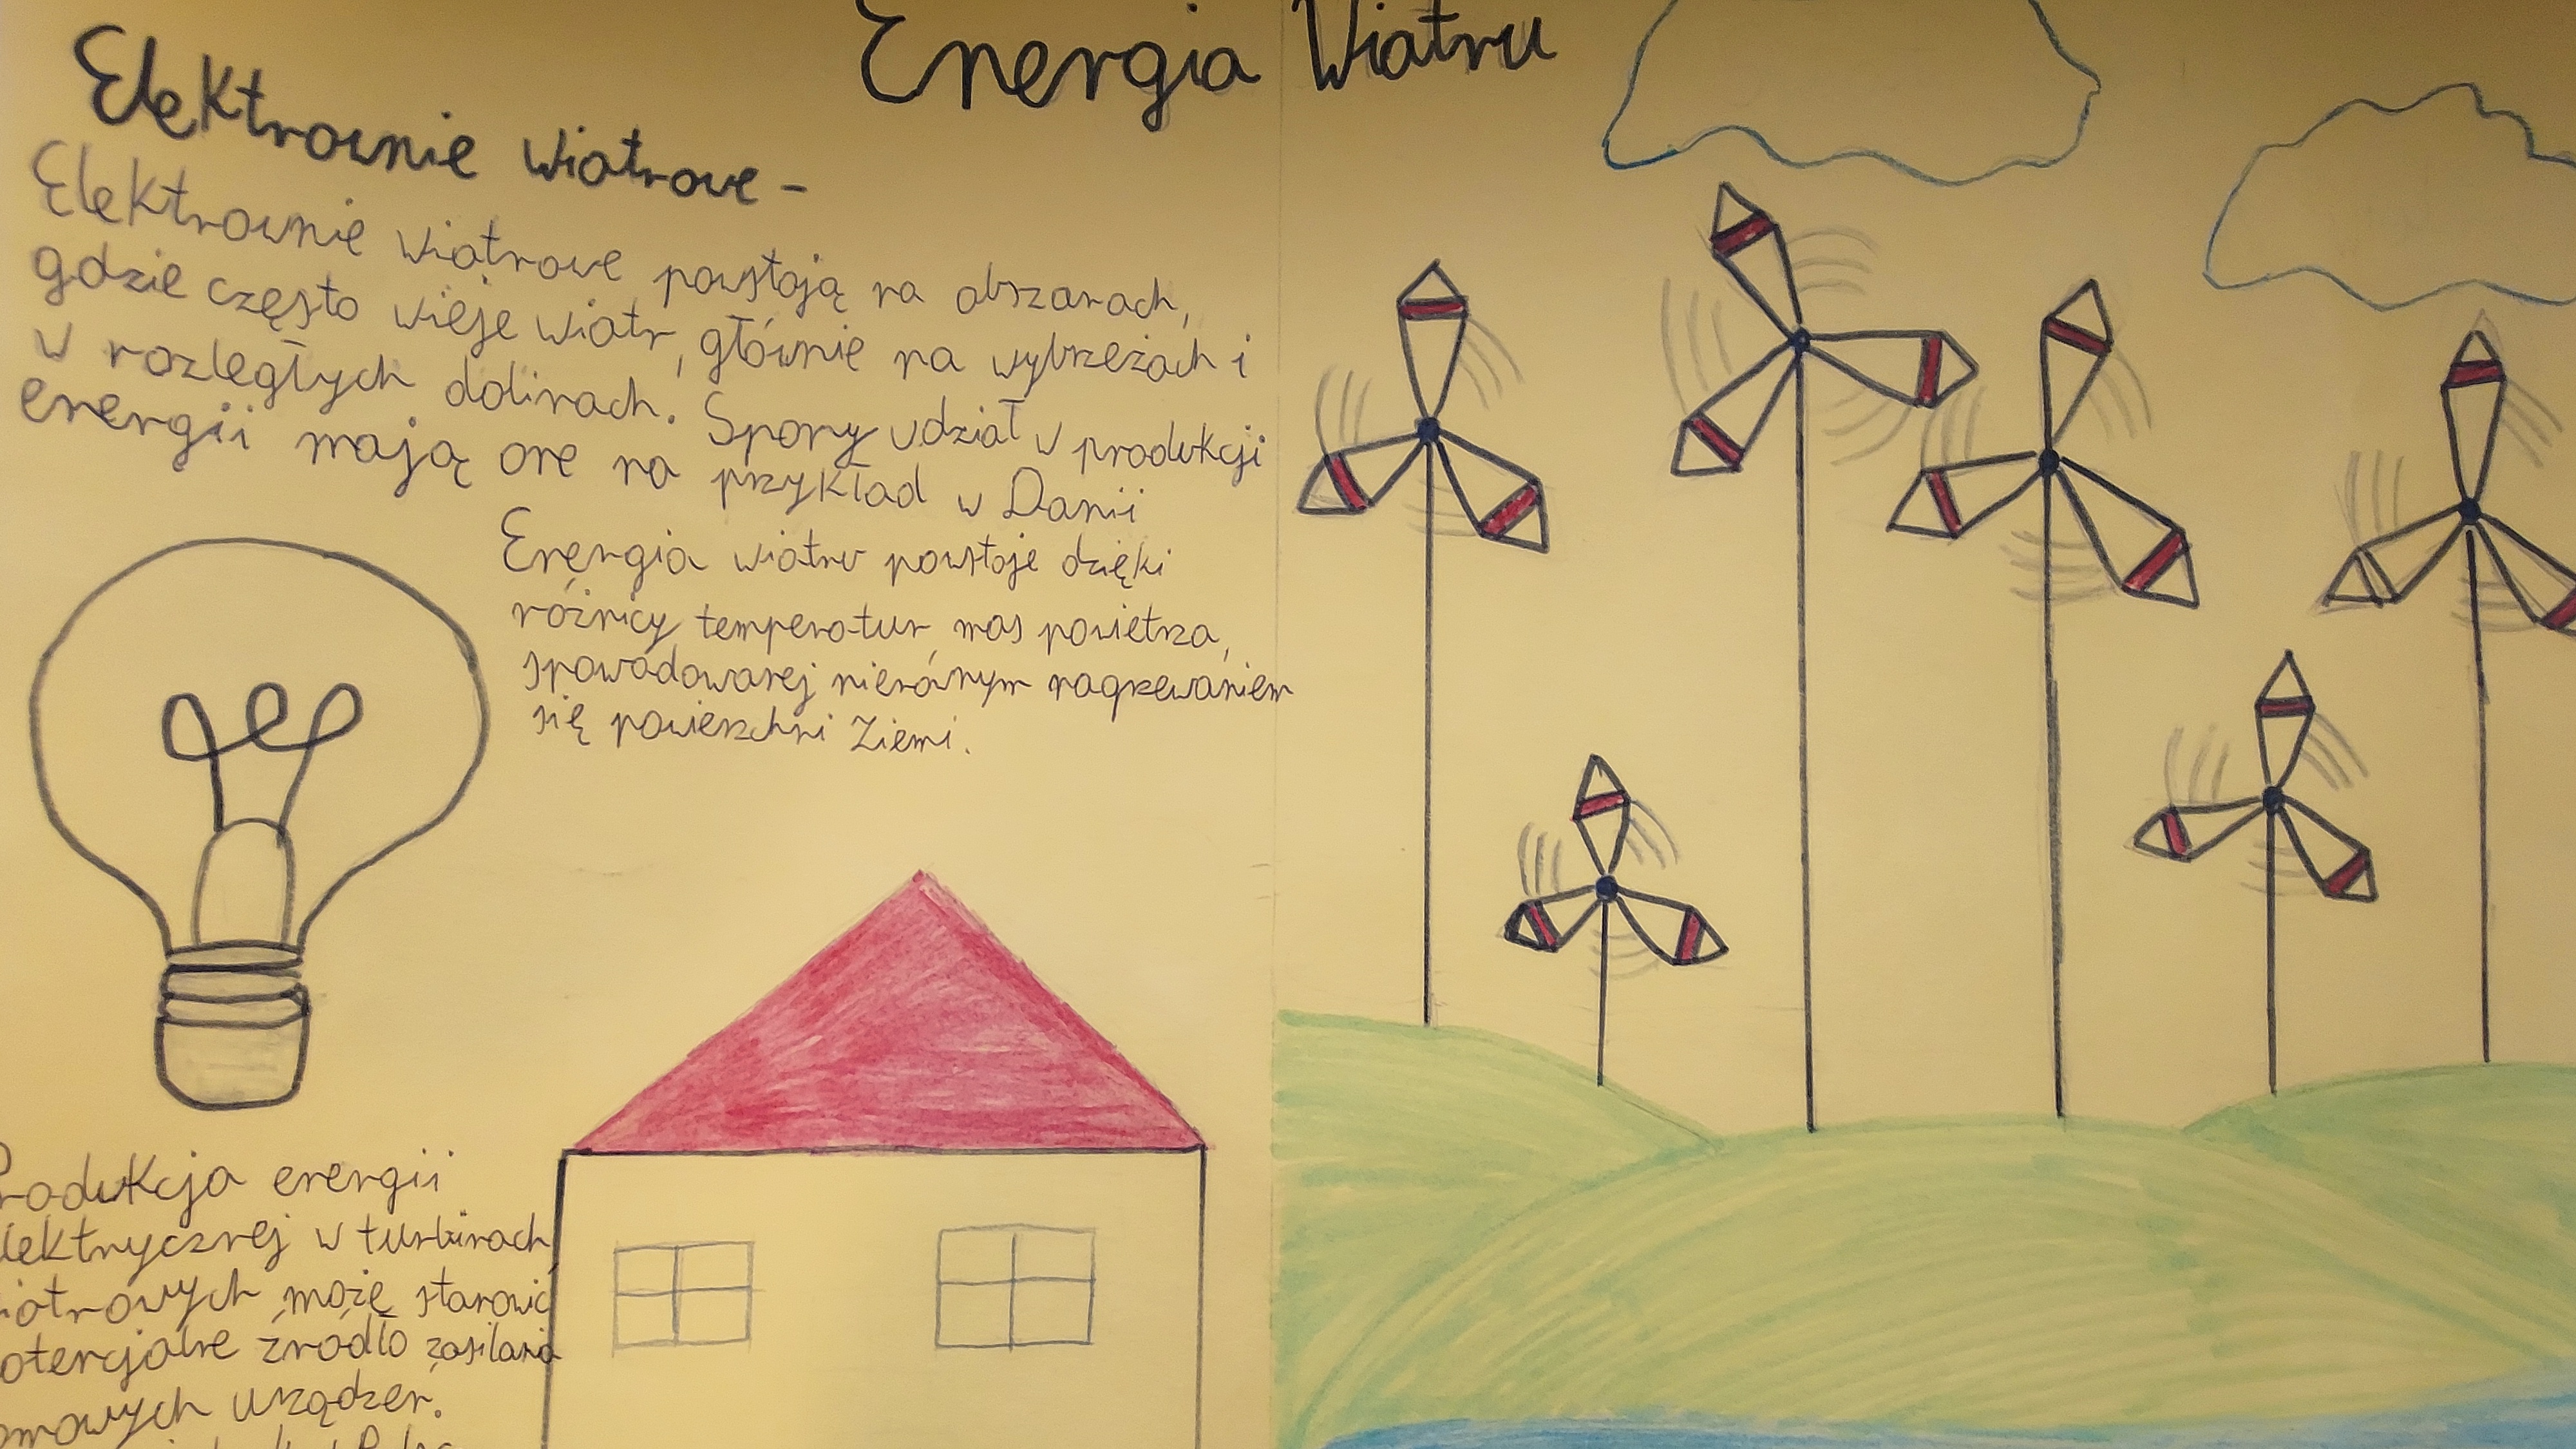 Energia Wiatru
Elektrownie wiatrowe -
Elektrownie wiatrowe powstają na obszarach,
gdzie często wieje wiatr, głównie na wybrzeżach i
w rozległych dolinach. Spory udział w produkcji
energii mają one na przykład w Danii
Energia wiatru powstaje dzięki
różnicy temperatur mas powietrza,
spowodowanej nierównym nagrzewaniem
się powierzchni Ziemi.
rodukcja energii
lektrycznej w turbinach
iatrowych może stanowić
otencjalne źródło zasilania
omowych urządzeń.